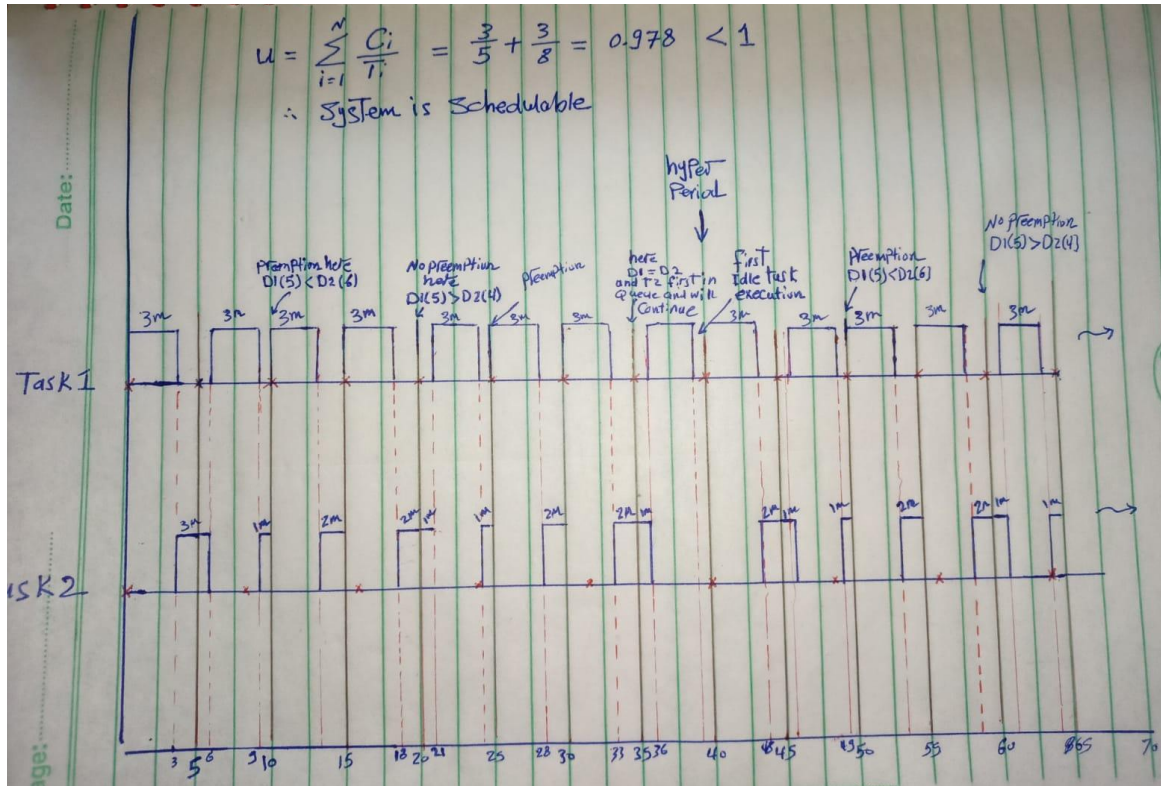 Date:
u = N Σ i=1 Ci/Ti = 3/5 + 3/8 = 0.978 < 1
∴ System is Schedulable
hyper
Period
Preemption here
D1(5)<D2(6)
No preemption
here
D1(5)>D2(4)
Preemption
here
D1=D2
and T2 first in
Queue and will
Continue
first
Idle task
execution
Preemption
D1(5)<D2(6)
No Preemption
D1(5)>D2(4)
3m 3m 3m 3m 3m 3m 3m 3m 3m 3m 3m
Task1
3m 1m 2m 2m 1m 1m 2m 2m 1m 2m 1m 1m 2m 2m 1m 1m
ask2
3 5 6 9 10 15 18 20 21 25 28 30 33 35 36 40 45 49 50 55 60 65 70
age: